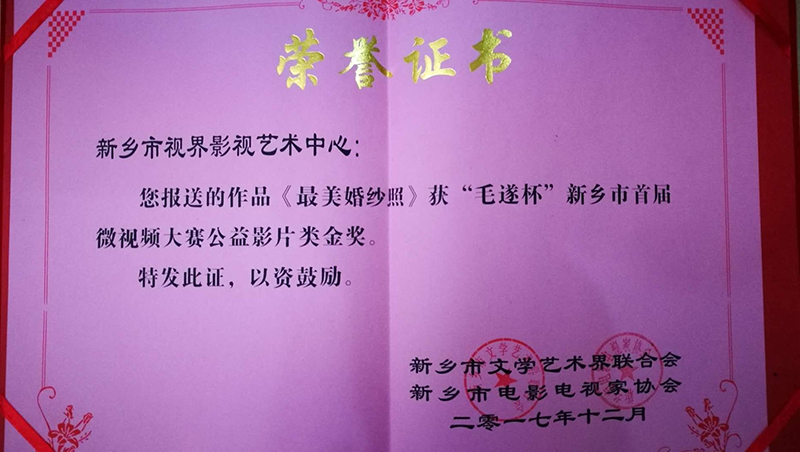 荣誉证书
新乡市视界影视艺术中心：
您报送的作品《最美婚纱照》获“毛遂杯”新乡市首届
微视频大赛公益影片类金奖。
特发此证，以资鼓励。
新乡市文学艺术界联合会
新乡市电影电视家协会
二零一七年十二月